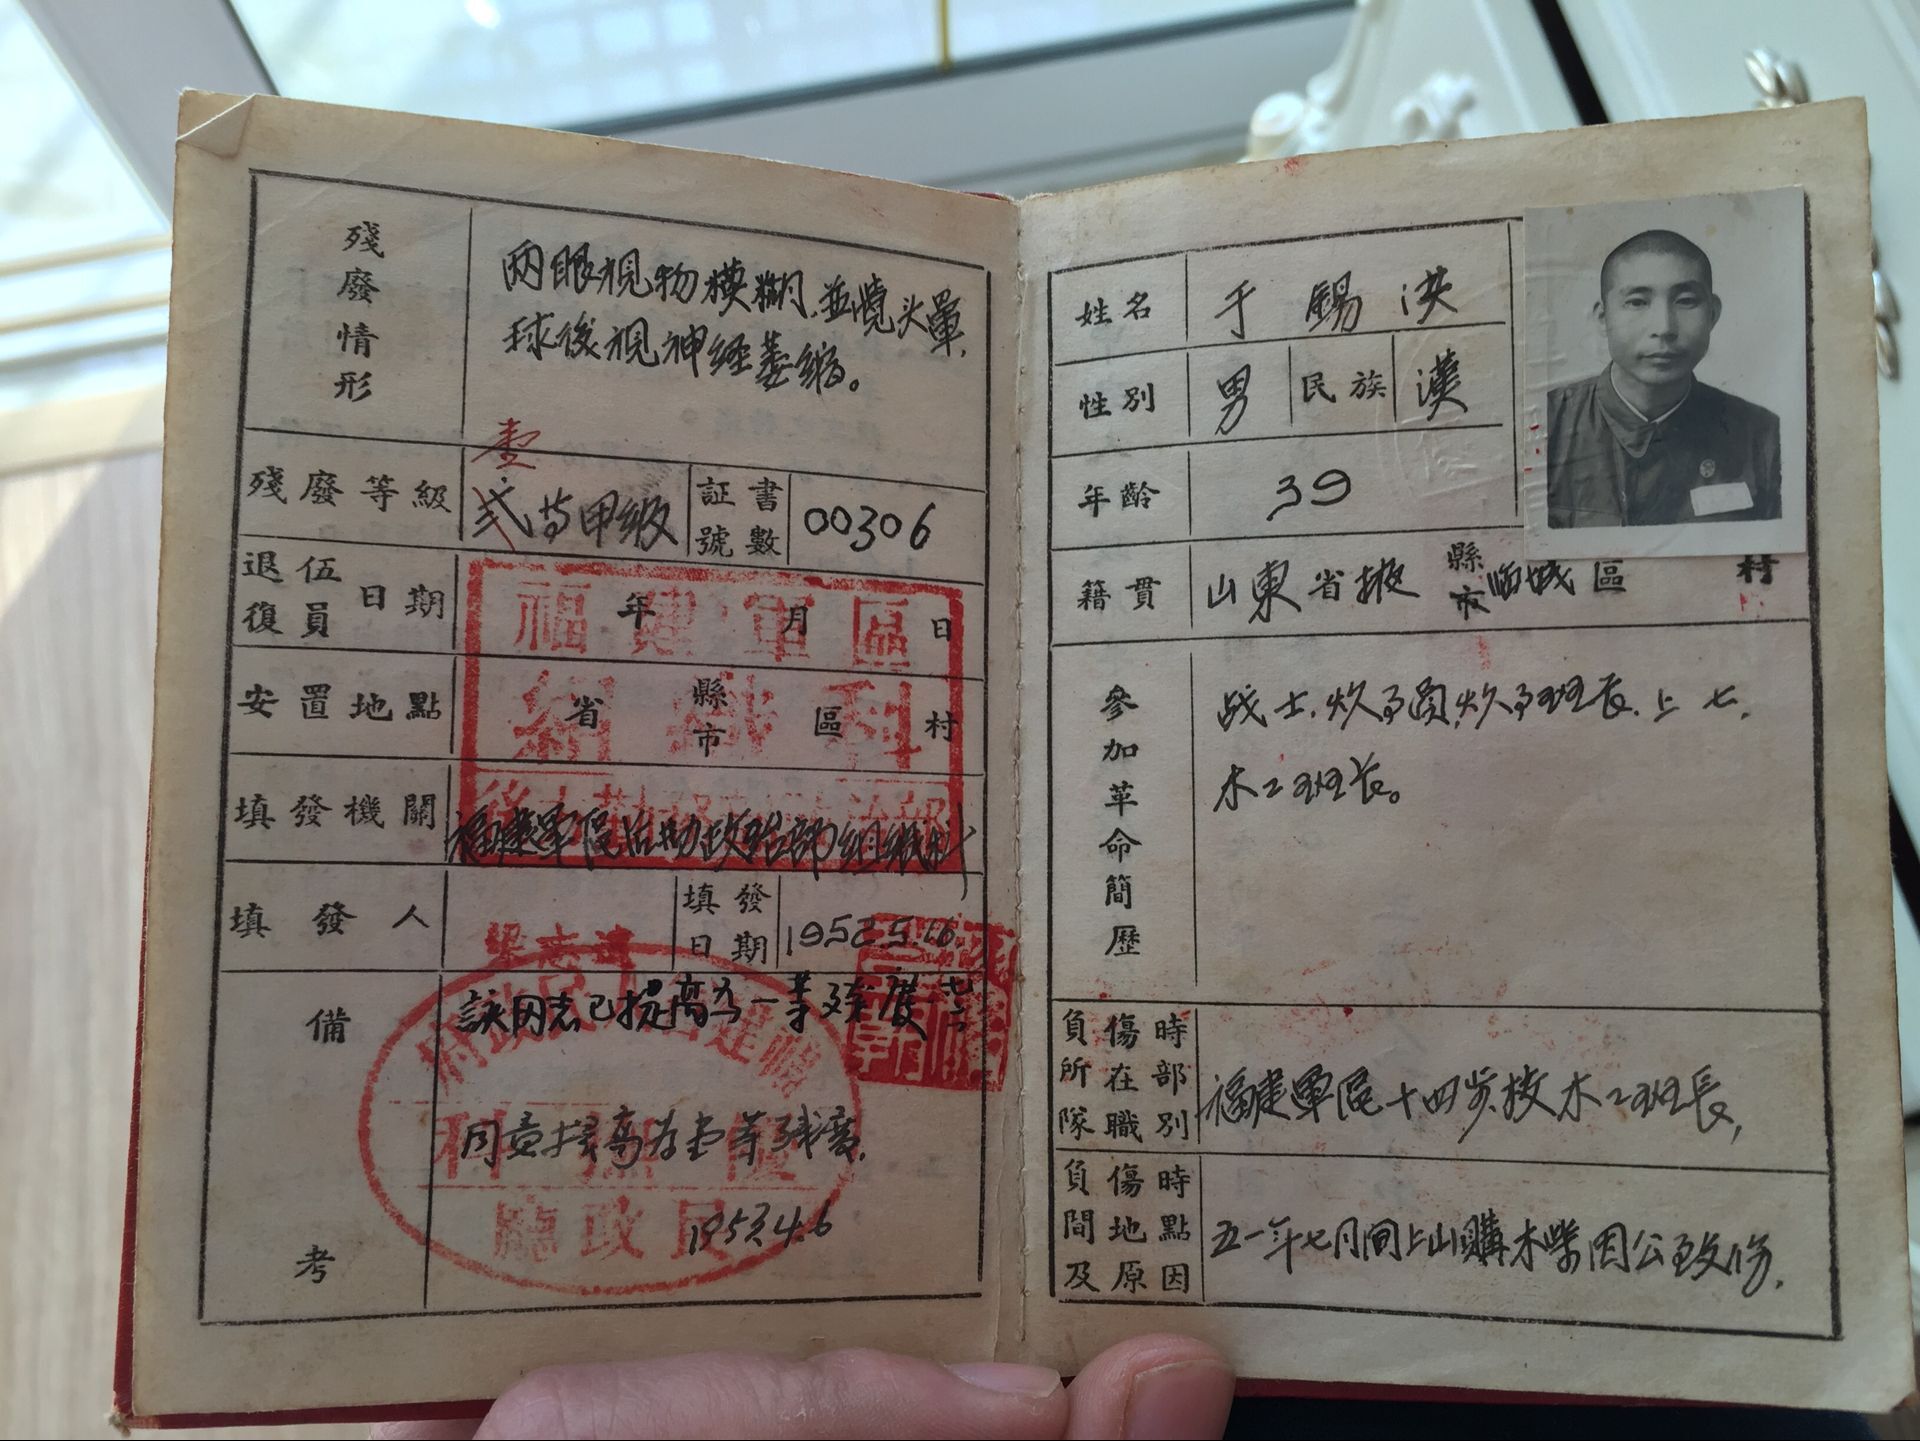 殘廢情形
两眼視物模糊.並慌头暈.
球後視神经萎缩。
殘廢等級
壹
弍等甲級
証書號數
00306
退伍復員日期
年 月 日
安置地點
省 縣市 區 村
填發機關
福建軍區后勤政治部組織科
福建軍區
組織科
填發人
填發日期
1952.5.16.
備考
該同志已提高为一等殘廢
同意提高为壱等殘廢.
1953.4.6
優撫科
民政廳
姓名
于錫洪
性別
男
民族
漢
年齡
39
籍貫
山東省掖縣市临城區 村
參加革命簡歷
战士.炊事員.炊事班長.上士.
木工班長。
負傷時所在部隊職別
福建軍區十四步校木工班長,
負傷時間地點及原因
五一年七月间上山購木柴因公致伤.